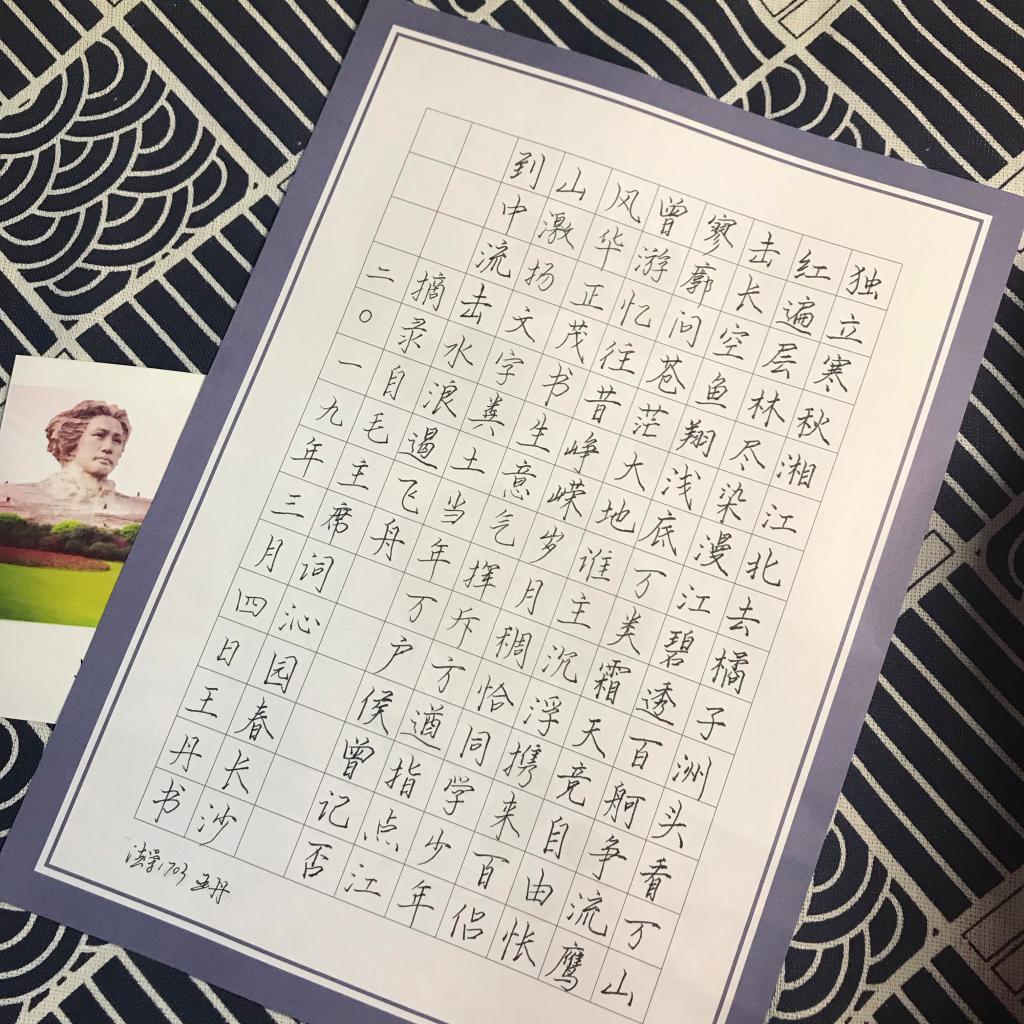 独立寒秋湘江北去橘子洲头看万山
红遍层林尽染漫江碧透百舸争流鹰
击长空鱼翔浅底万类霜天竞自由怅
寥廓问苍茫大地谁主沉浮携来百侣
曾游忆往昔峥嵘岁月稠恰同学少年
风华正茂书生意气挥斥方遒指点江
山激扬文字粪土当年万户侯曾记否
到中流击水浪遏飞舟
摘录自毛主席词沁园春长沙
二〇一九年三月四日王丹书
法学1703 王丹